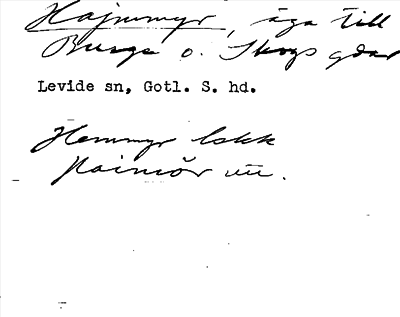 Hajmmyr, äga till
Burge o. Skogs gdar
Levide sn, Gotl. S. hd.
Hemmyr Iskk
Haimör uu.